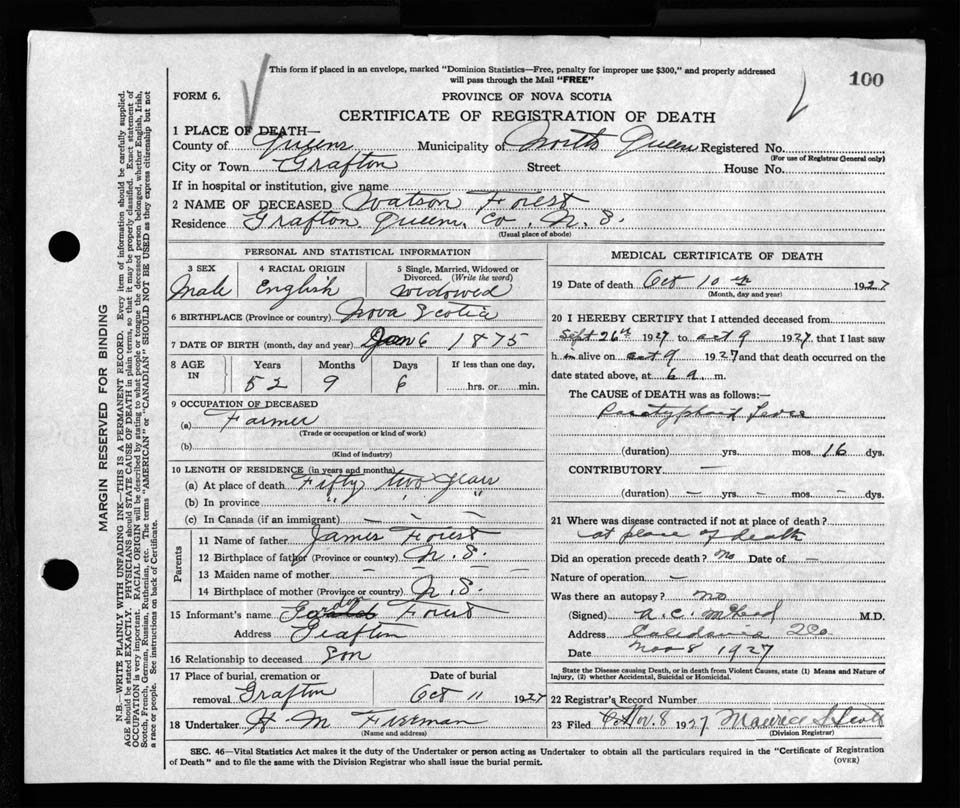 This form if placed in an envelope, marked "Dominion Statistics—Free, penalty for improper use $300," and properly addressed
will pass through the Mail "FREE"
100
FORM 6.
PROVINCE OF NOVA SCOTIA
CERTIFICATE OF REGISTRATION OF DEATH
1 PLACE OF DEATH—
County of Queens Municipality of North Queens Registered No.
(For use of Registrar General only)
City or Town Grafton Street House No.
If in hospital or institution, give name
2 NAME OF DECEASED Watson Forest
Residence Grafton Queens Co. N. S.
(Usual place of abode)
PERSONAL AND STATISTICAL INFORMATION
3 SEX 4 RACIAL ORIGIN 5 Single, Married, Widowed or Divorced. (Write the word)
Male English Widowed
6 BIRTHPLACE (Province or country) Nova Scotia
7 DATE OF BIRTH (month, day and year) Jan 6 1875
8 AGE IN Years Months Days If less than one day,
52 9 6 hrs. or min.
9 OCCUPATION OF DECEASED
(a) Farmer
(Trade or occupation or kind of work)
(b)
(Kind of industry)
10 LENGTH OF RESIDENCE (in years and months)
(a) At place of death Fifty two years
(b) In province " " "
(c) In Canada (if an immigrant) — — —
Parents
11 Name of father James Forest
12 Birthplace of father (Province or country) N. S.
13 Maiden name of mother — — —
14 Birthplace of mother (Province or country) N. S.
15 Informant's name Gorden Forest
Address Grafton
16 Relationship to deceased Son
17 Place of burial, cremation or Date of burial
removal Grafton Oct 11 1927
18 Undertaker H. M. Freeman
(Name and address)
MEDICAL CERTIFICATE OF DEATH
19 Date of death Oct 10th 1927
(Month, day and year)
20 I HEREBY CERTIFY that I attended deceased from
Sept 26th 1927 to oct 9 1927, that I last saw
h im alive on oct 9 1927 and that death occurred on
date stated above, at 6 a. m.
The CAUSE of DEATH was as follows:—
Paratyphoid Fever
(duration) yrs. mos. 16 dys.
CONTRIBUTORY —
(duration) — yrs. — mos. — dys.
21 Where was disease contracted if not at place of death?
at place of death
Did an operation precede death? no Date of —
Nature of operation —
Was there an autopsy? no
(Signed) A. C. McLeod M.D.
Address Caledonia Q Co.
Date Nov 8 1927
State the Disease causing Death, or in death from Violent Causes, state (1) Means and Nature of
Injury, (2) whether Accidental, Suicidal or Homicidal.
22 Registrar's Record Number
23 Filed Nov. 8 1927 Maurice S Scott
(Division Registrar)
SEC. 46—Vital Statistics Act makes it the duty of the Undertaker or person acting as Undertaker to obtain all the particulars required in the "Certificate of Registration
of Death" and to file the same with the Division Registrar who shall issue the burial permit.
(OVER)
MARGIN RESERVED FOR BINDING
N.B.—WRITE PLAINLY WITH UNFADING INK—THIS IS A PERMANENT RECORD. Every item of information should be carefully supplied.
AGE should be stated EXACTLY. PHYSICIANS should STATE CAUSE OF DEATH in plain terms, so that it may be properly classified. Exact statement of
OCCUPATION is very important. RACIAL ORIGIN will be described by stating to what people or tongue the deceased person belonged, whether English, Irish,
Scotch, French, German, Russian, Ruthenian, etc. The terms "AMERICAN" or "CANADIAN" SHOULD NOT BE USED as they express citizenship but not
a race or people. See instructions on back of Certificate.